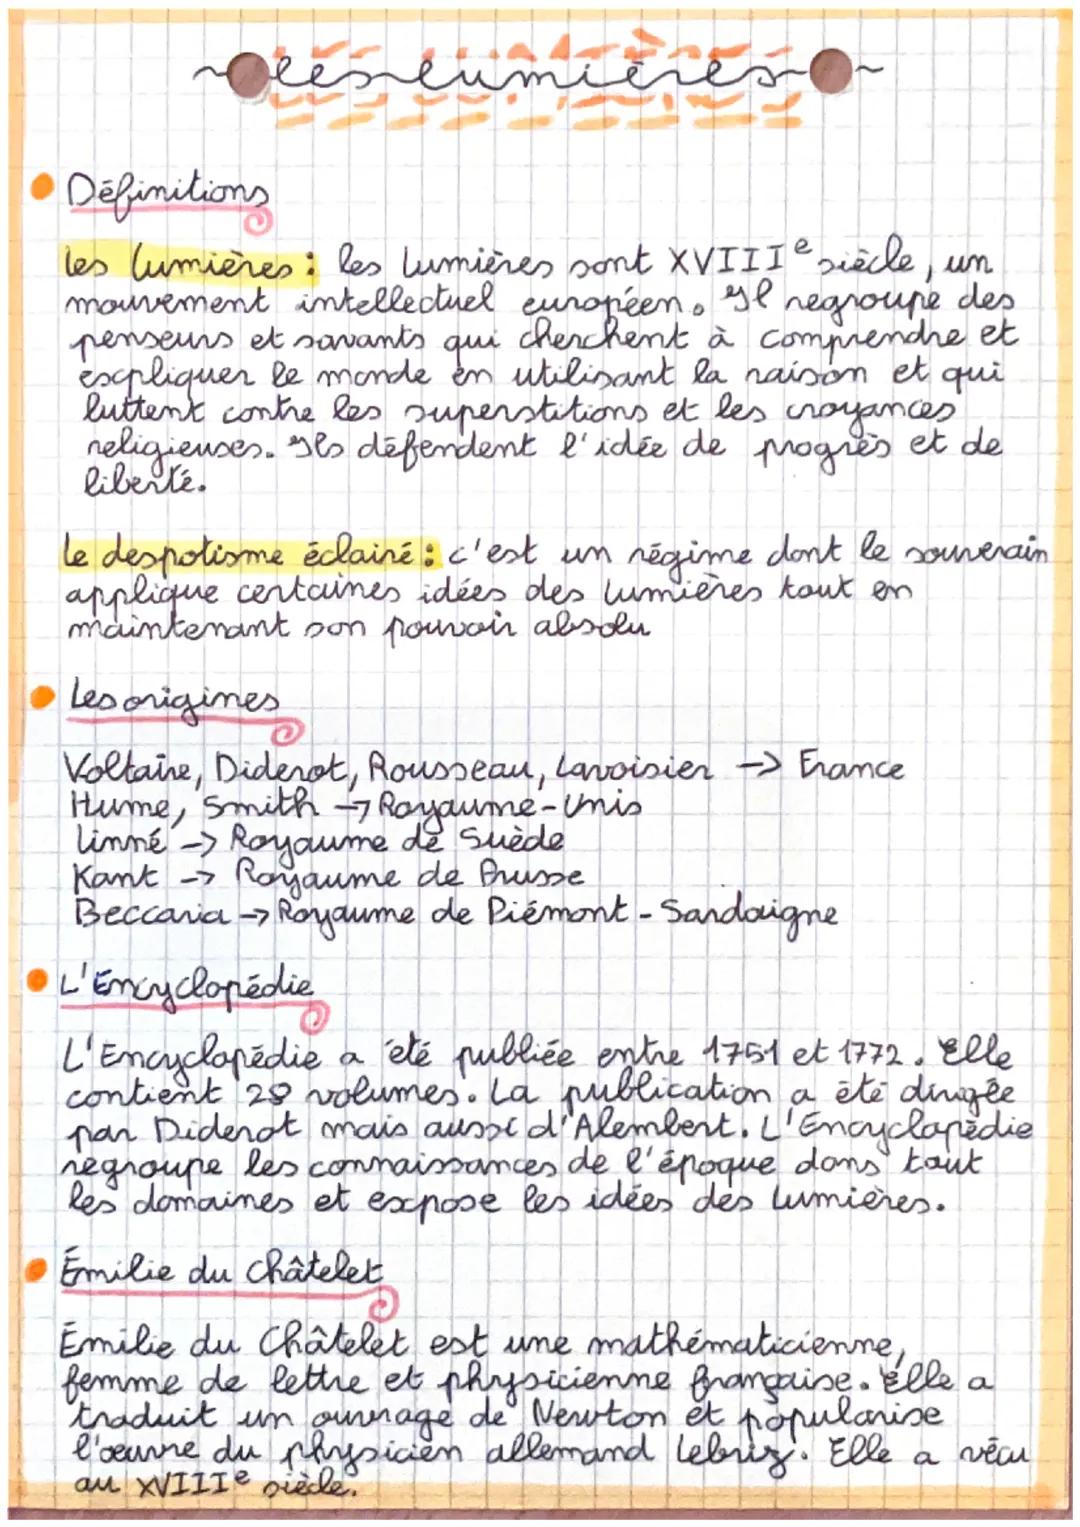 les lumières
Définitions
les lumières : les lumières sont XVIIIe siècle, un
mouvement intellectuel européen. Il regroupe des
penseurs et savants qui cherchent à comprendre et
expliquer le monde en utilisant la raison et qui
luttent contre les superstitions et les croyances
religieuses. Ils défendent l'idée de progrès et de
liberté.
le despotisme éclairé : c'est un régime dont le souverain
applique certaines idées des lumières tout en
maintenant son pouvoir absolu
Les origines
Voltaire, Diderot, Rousseau, Lavoisier -> France
Hume, Smith -> Royaume-Unis
Linné -> Royaume de Suède
Kant -> Royaume de Prusse
Beccaria -> Royaume de Piémont - Sardaigne
L'Encyclopédie
L'Encyclopédie a été publiée entre 1751 et 1772. Elle
contient 28 volumes. La publication a été dirigée
par Diderot mais aussi d'Alembert. L'Encyclopédie
regroupe les connaissances de l'époque dans tout
les domaines et expose les idées des lumières.
Émilie du Châtelet
Émilie du Châtelet est une mathématicienne,
femme de lettre et physicienne française. Elle a
traduit un ouvrage de Newton et popularise
l'œuvre du physicien allemand Lebniz. Elle a vécu
au XVIIIe siècle.